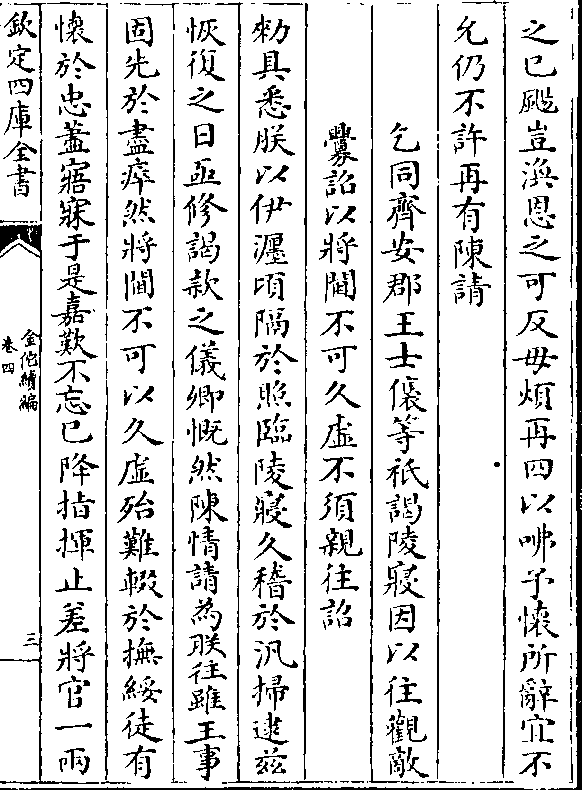 之已颺豈渙恩之可反毋煩再四以咈予懷所辭宜不
允仍不許再有陳請
乞同齊安郡王士㒟等祇謁陵寢因以往觀敵
釁詔以將閫不可久虛不須親往詔
勑具悉朕以伊瀍頃隔於照臨陵寢久稽於汛掃逮茲
恢復之日亟修謁款之儀卿慨然陳情請為朕往雖王事
固先於盡瘁然將閫不可以久虛殆難輟於撫綏徒有
懷於忠藎寤寐于是嘉歎不忘已降指揮止差將官一兩
欽定四庫全書
金佗續編
卷四
三